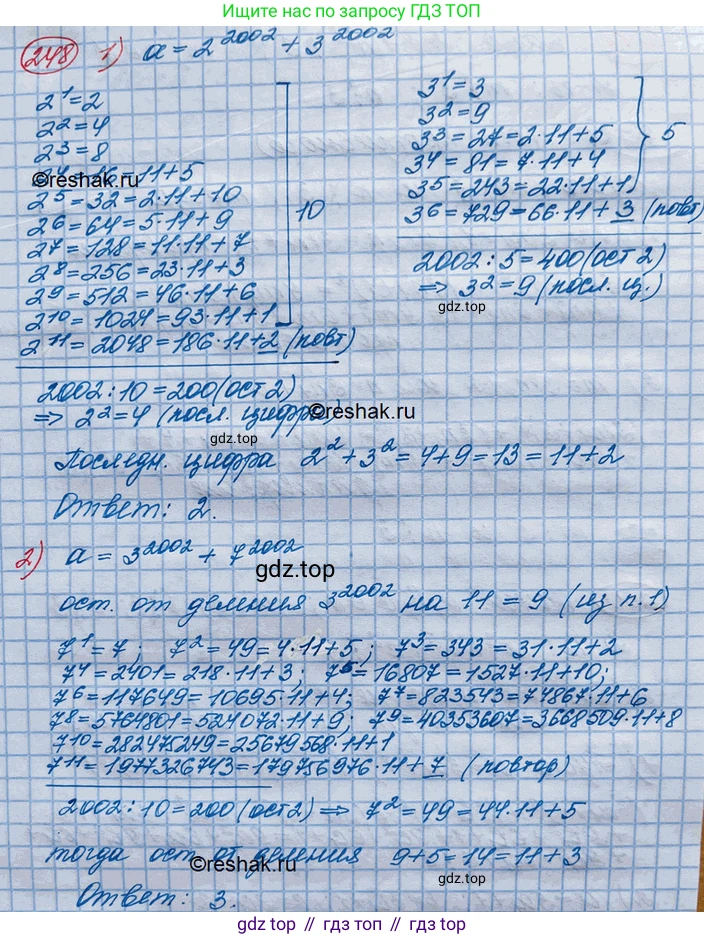 Ищите решение по запросу ГДЗ ТОП
248 1) a = 2^2002 + 3^2002
2^1 = 2
2^2 = 4
2^3 = 8
= 11+5
2^5 = 32 = 2·11+10
2^6 = 64 = 5·11+9
2^7 = 128 = 11·11+7
2^8 = 256 = 23·11+3
2^9 = 512 = 46·11+6
2^10 = 1024 = 93·11+1
10
2^11 = 2048 = 186·11+2 (повт)
2002 : 10 = 200 (ост 2)
⇒ 2^2 = 4 (посл. цифра)
3^1 = 3
3^2 = 9
3^3 = 27 = 2·11+5
3^4 = 81 = 7·11+4
3^5 = 243 = 22·11+1
5
3^6 = 729 = 66·11+3 (повт)
2002 : 5 = 400 (ост 2)
⇒ 3^2 = 9 (посл. ц.)
gdz.top
©reshak.ru
©reshak.ru
gdz.top
Последн. цифра 2^2 + 3^2 = 4+9 = 13 = 11+2
Ответ: 2.
2) a = 3^2002 + 7^2002
gdz.top
ост. от деления 3^2002 на 11 = 9 (из п.1)
7^1 = 7; 7^2 = 49 = 4·11+5; 7^3 = 343 = 31·11+2
7^4 = 2401 = 218·11+3; 7^5 = 16807 = 1527·11+10;
7^6 = 117649 = 10695·11+4; 7^7 = 823543 = 74867·11+6
7^8 = 5764801 = 524072·11+9; 7^9 = 40353607 = 3668509·11+8
7^10 = 282475249 = 25679568·11+1
7^11 = 1977326743 = 179756976·11+7 (повтор)
2002 : 10 = 200 (ост 2) ⇒ 7^2 = 49 = 44·11+5
тогда ост. от деления 9+5 = 14 = 11+3
©reshak.ru
gdz.top
Ответ: 3.
gdz top // гдз топ // gdz.top